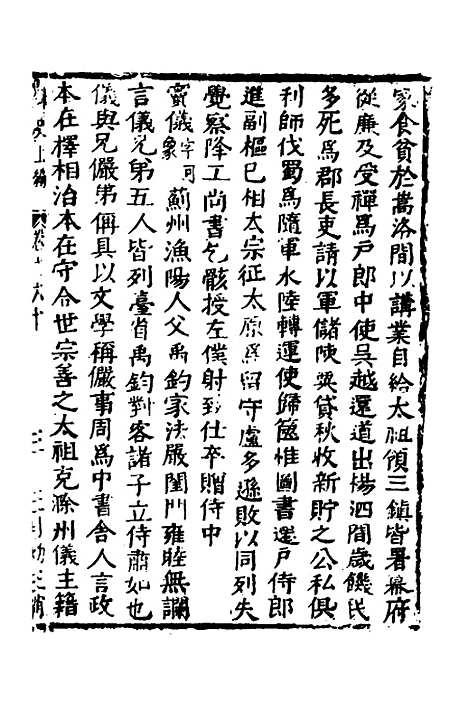 家食貧於嵩洛間以講業自給太祖領三鎮皆署幕府
從廉及受禪爲戶郎中使吳越還道出揚泗間歲饑民
多死爲郡長吏請以軍儲陳粟貸秋收新貯之公私俱
利師伐蜀爲隨軍水陸轉運使歸篋惟圖書還戶侍郎
進副樞已相太宗征太原爲留守盧多遜敗以同列失
覺察降工尚書乞骸授左僕射致仕卒贈侍中
竇儀字可象薊州漁陽人父禹鈞家法嚴閨門雍睦無讕
言儀兄第五人皆列臺省禹鈞對客諸子立侍肅如也
儀與兄儼第偁具以文學稱儼事周爲中書舍人言政
本在擇相治本在守令世宗善之太祖克滁州儀主籍
上編 卷 六十